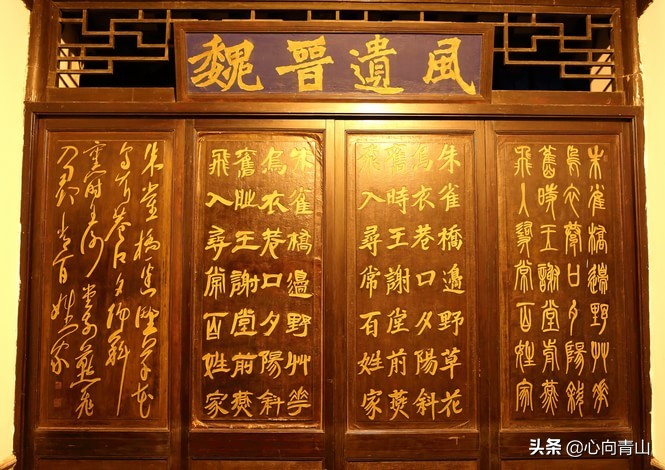 魏晉遺風
朱雀橋邊野艸華
烏衣巷口夕陽斜
舊時王謝堂前燕
飛入尋常百姓家
朱雀橋邊野草花
烏衣巷口夕陽斜
舊時王謝堂前燕
飛入尋常百姓家
朱雀橋邊野艸華
烏衣巷口夕陽斜
舊時王謝堂前燕
飛入尋常百姓家
朱雀橋邊野草花
烏衣巷口夕陽斜
舊時王謝堂前燕飛
入尋常百姓家
头条 @心向青山